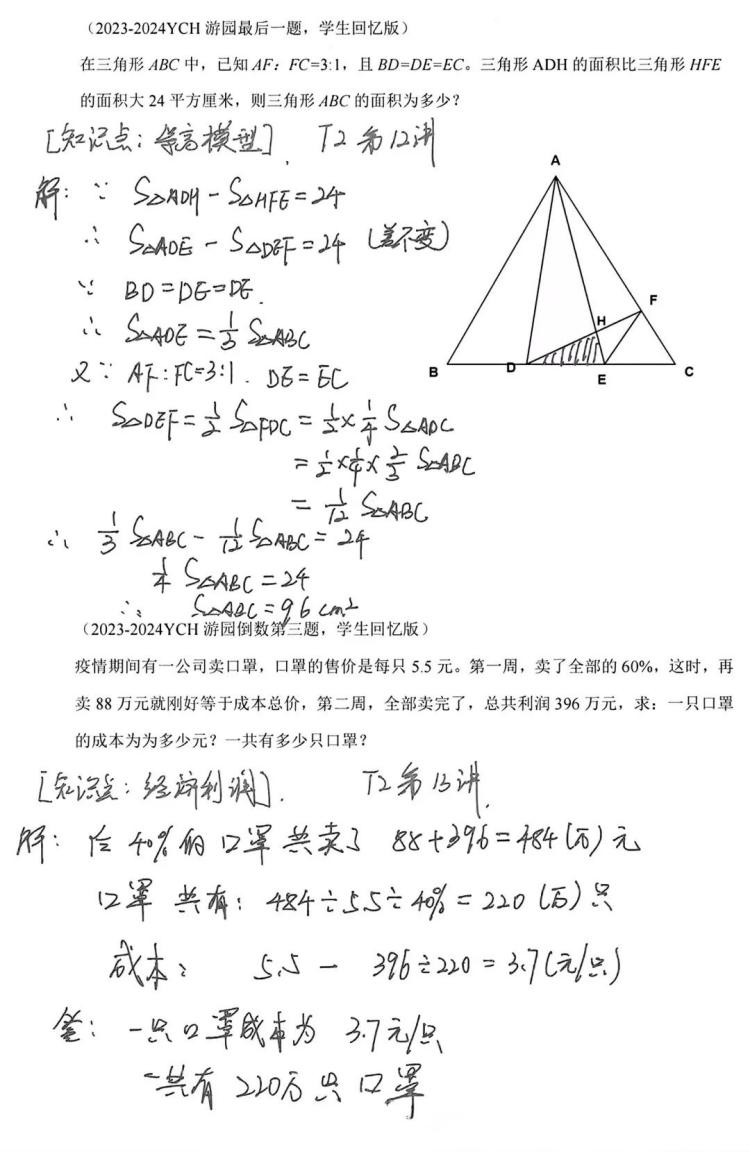 （2023-2024YCH 游园最后一题，学生回忆版）
在三角形 ABC 中，已知 AF：FC=3:1，且 BD=DE=EC。三角形 ADH 的面积比三角形 HFE
的面积大 24 平方厘米，则三角形 ABC 的面积为多少？
[知识点：等高模型]. T2 第12讲
解：∵ S△ADH - S△HFE = 24
∴ S△ADE - S△DEF = 24 (差不变)
∵ BD = DE = DE.
∴ S△ADE = 1/3 S△ABC
又∵ AF:FC=3:1. DE = EC
∴ S△DEF = 1/2 S△FDC = 1/2 × 1/4 S△ADC
= 1/2 × 1/4 × 2/3 S△ABC
= 1/12 S△ABC
∴ 1/3 S△ABC - 1/12 S△ABC = 24
1/4 S△ABC = 24
∴ S△ABC = 96 cm²
A
F
H
B
D
E
C
（2023-2024YCH 游园倒数第三题，学生回忆版）
疫情期间有一公司卖口罩，口罩的售价是每只 5.5 元。第一周，卖了全部的 60%，这时，再
卖 88 万元就刚好等于成本总价，第二周，全部卖完了，总共利润 396 万元，求：一只口罩
的成本为为多少元？一共有多少只口罩？
[知识点：经济利润]. T2 第13讲.
解：后 40% 的口罩共卖了 88+396=484(万)元
口罩共有：484÷5.5÷40% = 220 (万)只
成本： 5.5 - 396÷220 = 3.7(元/只)
答：一只口罩成本为 3.7元/只
一共有 220万只口罩